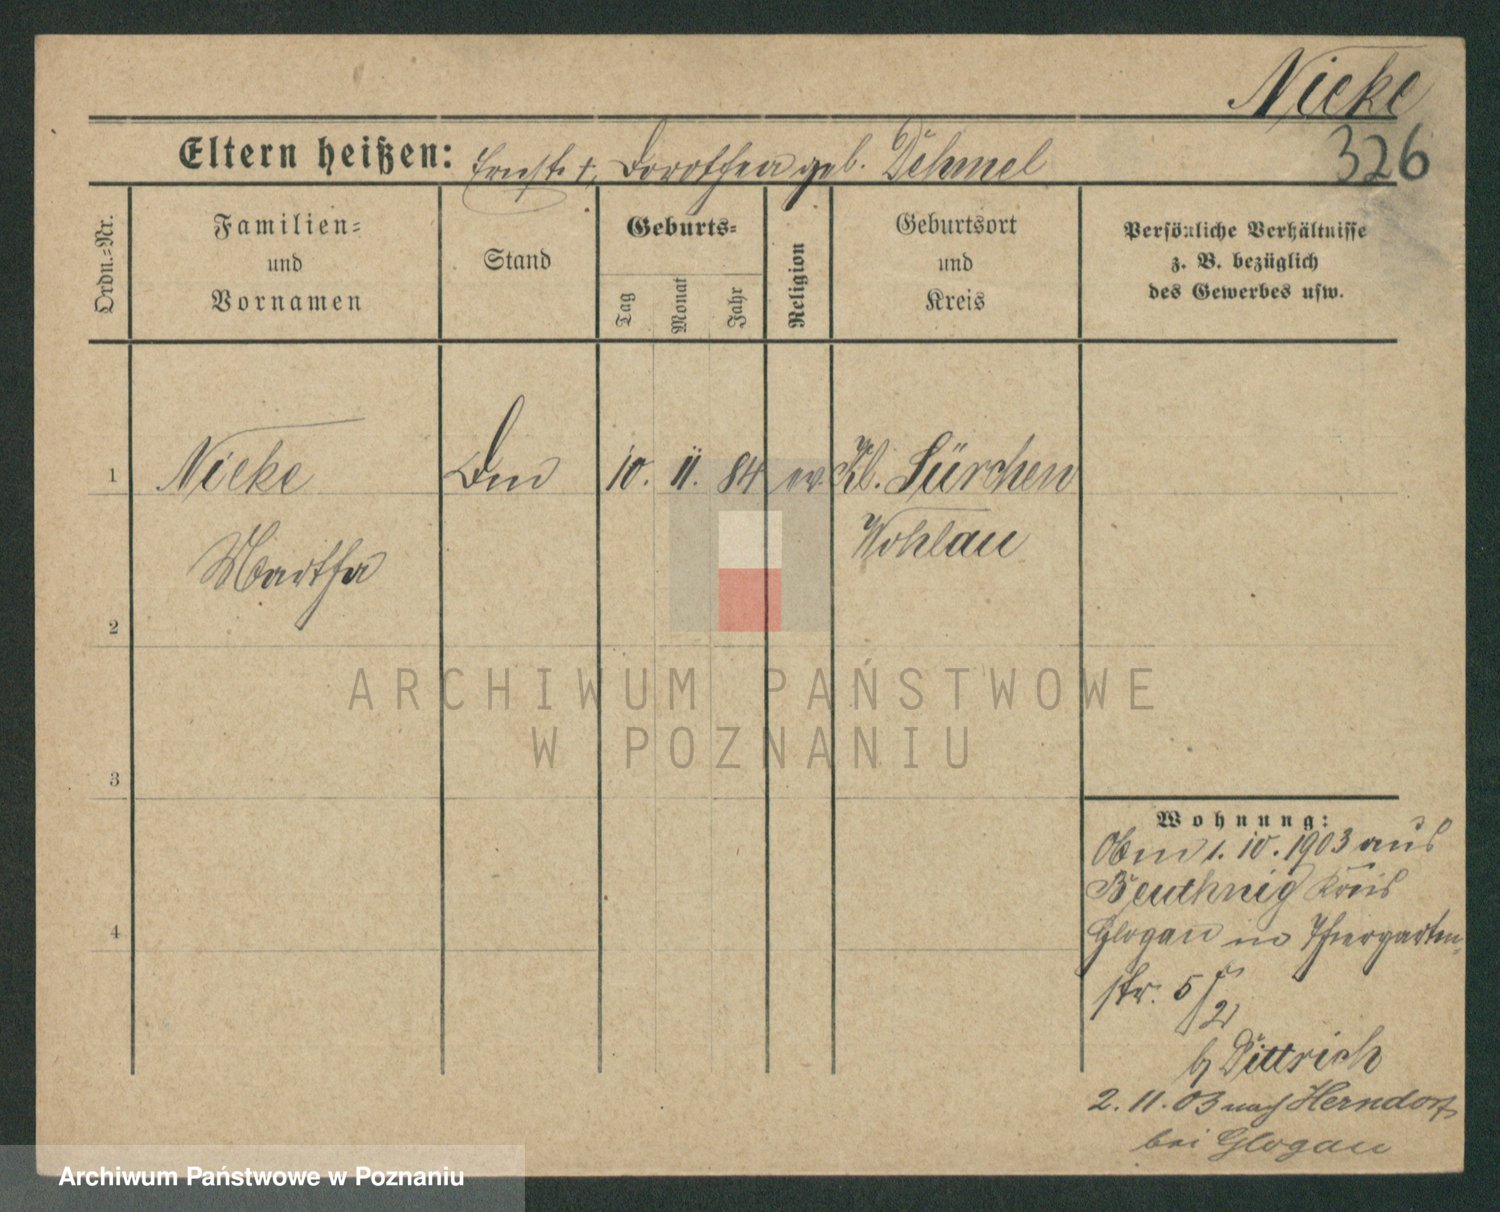 Nieke
326
Eltern heißen: Ernst †, Dorothea geb. Dehmel
Ordn.-Nr.
Familien-
und
Vornamen
Stand
Geburts-
Tag
Monat
Jahr
Religion
Geburtsort
und
Kreis
Persönliche Verhältnisse
z. B. bezüglich
des Gewerbes usw.
1 Nieke 10. 11. 84 ev. Kl. Sürchen
Martha Wohlau
2
ARCHIWUM PAŃSTWOWE
W POZNANIU
3
Wohnung:
1. 10. 1903 aus
Beuthnig Kreis
4
Glogau in Thiergarten-
str. 5
2
b/ Dittrich
2. 11. 03 nach Herndorf
bei Glogau
Archiwum Państwowe w Poznaniu